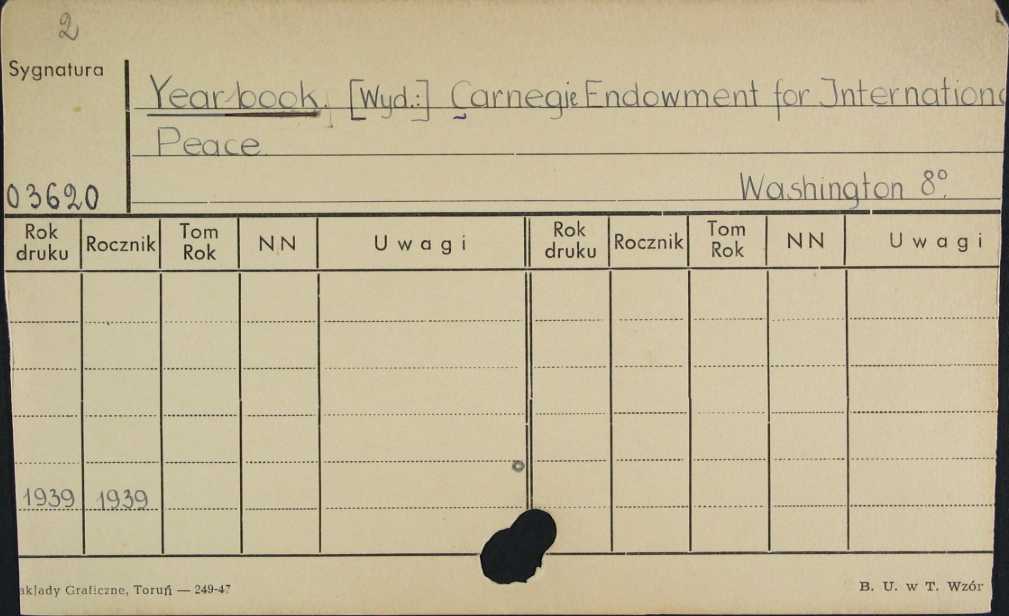 2
Sygnatura
Year-book. [Wyd.:] Carnegie Endowment for Internationa
Peace.
03620
Washington 8°.
Rok druku Rocznik Tom Rok NN Uwagi Rok druku Rocznik Tom Rok NN Uwagi
1939 1939
akłady Graficzne, Toruń — 249-47 B. U. w T. Wzór